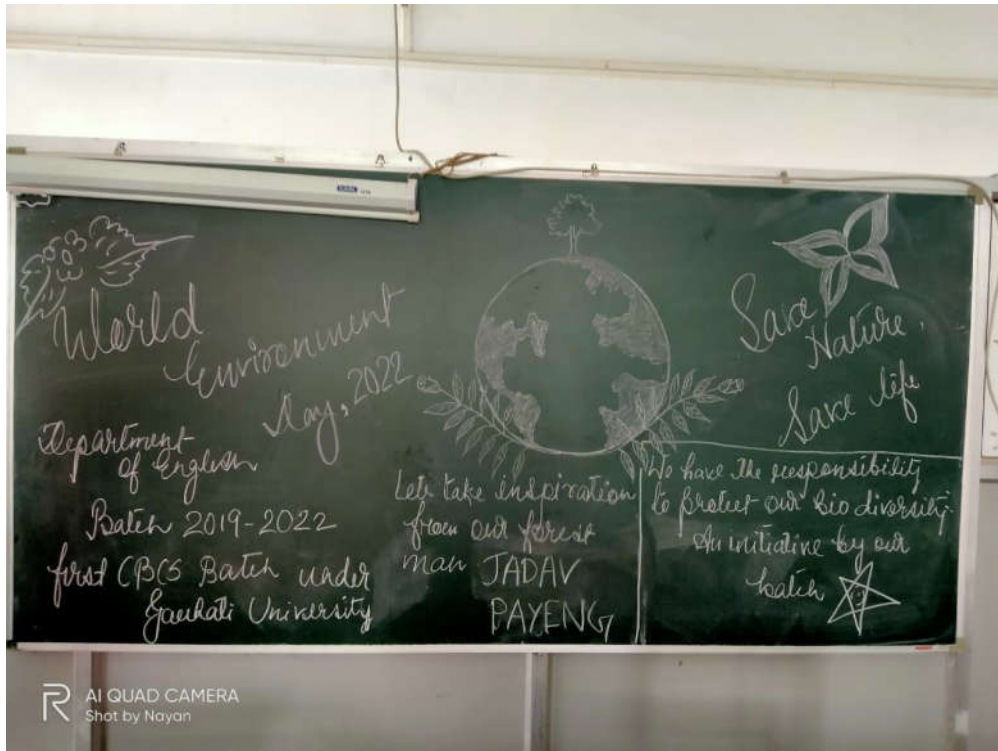 World
Environment
Day, 2022
Department
of English
Batch 2019-2022
first CBCS Batch under
Gauhati University
Lets take inspiration
from our forest
man JADAV
PAYENG
Save
Nature,
Save life
We have the responsibility
to protect our Bio diversity.
An initiative by our
batch
AI QUAD CAMERA
Shot by Nayan